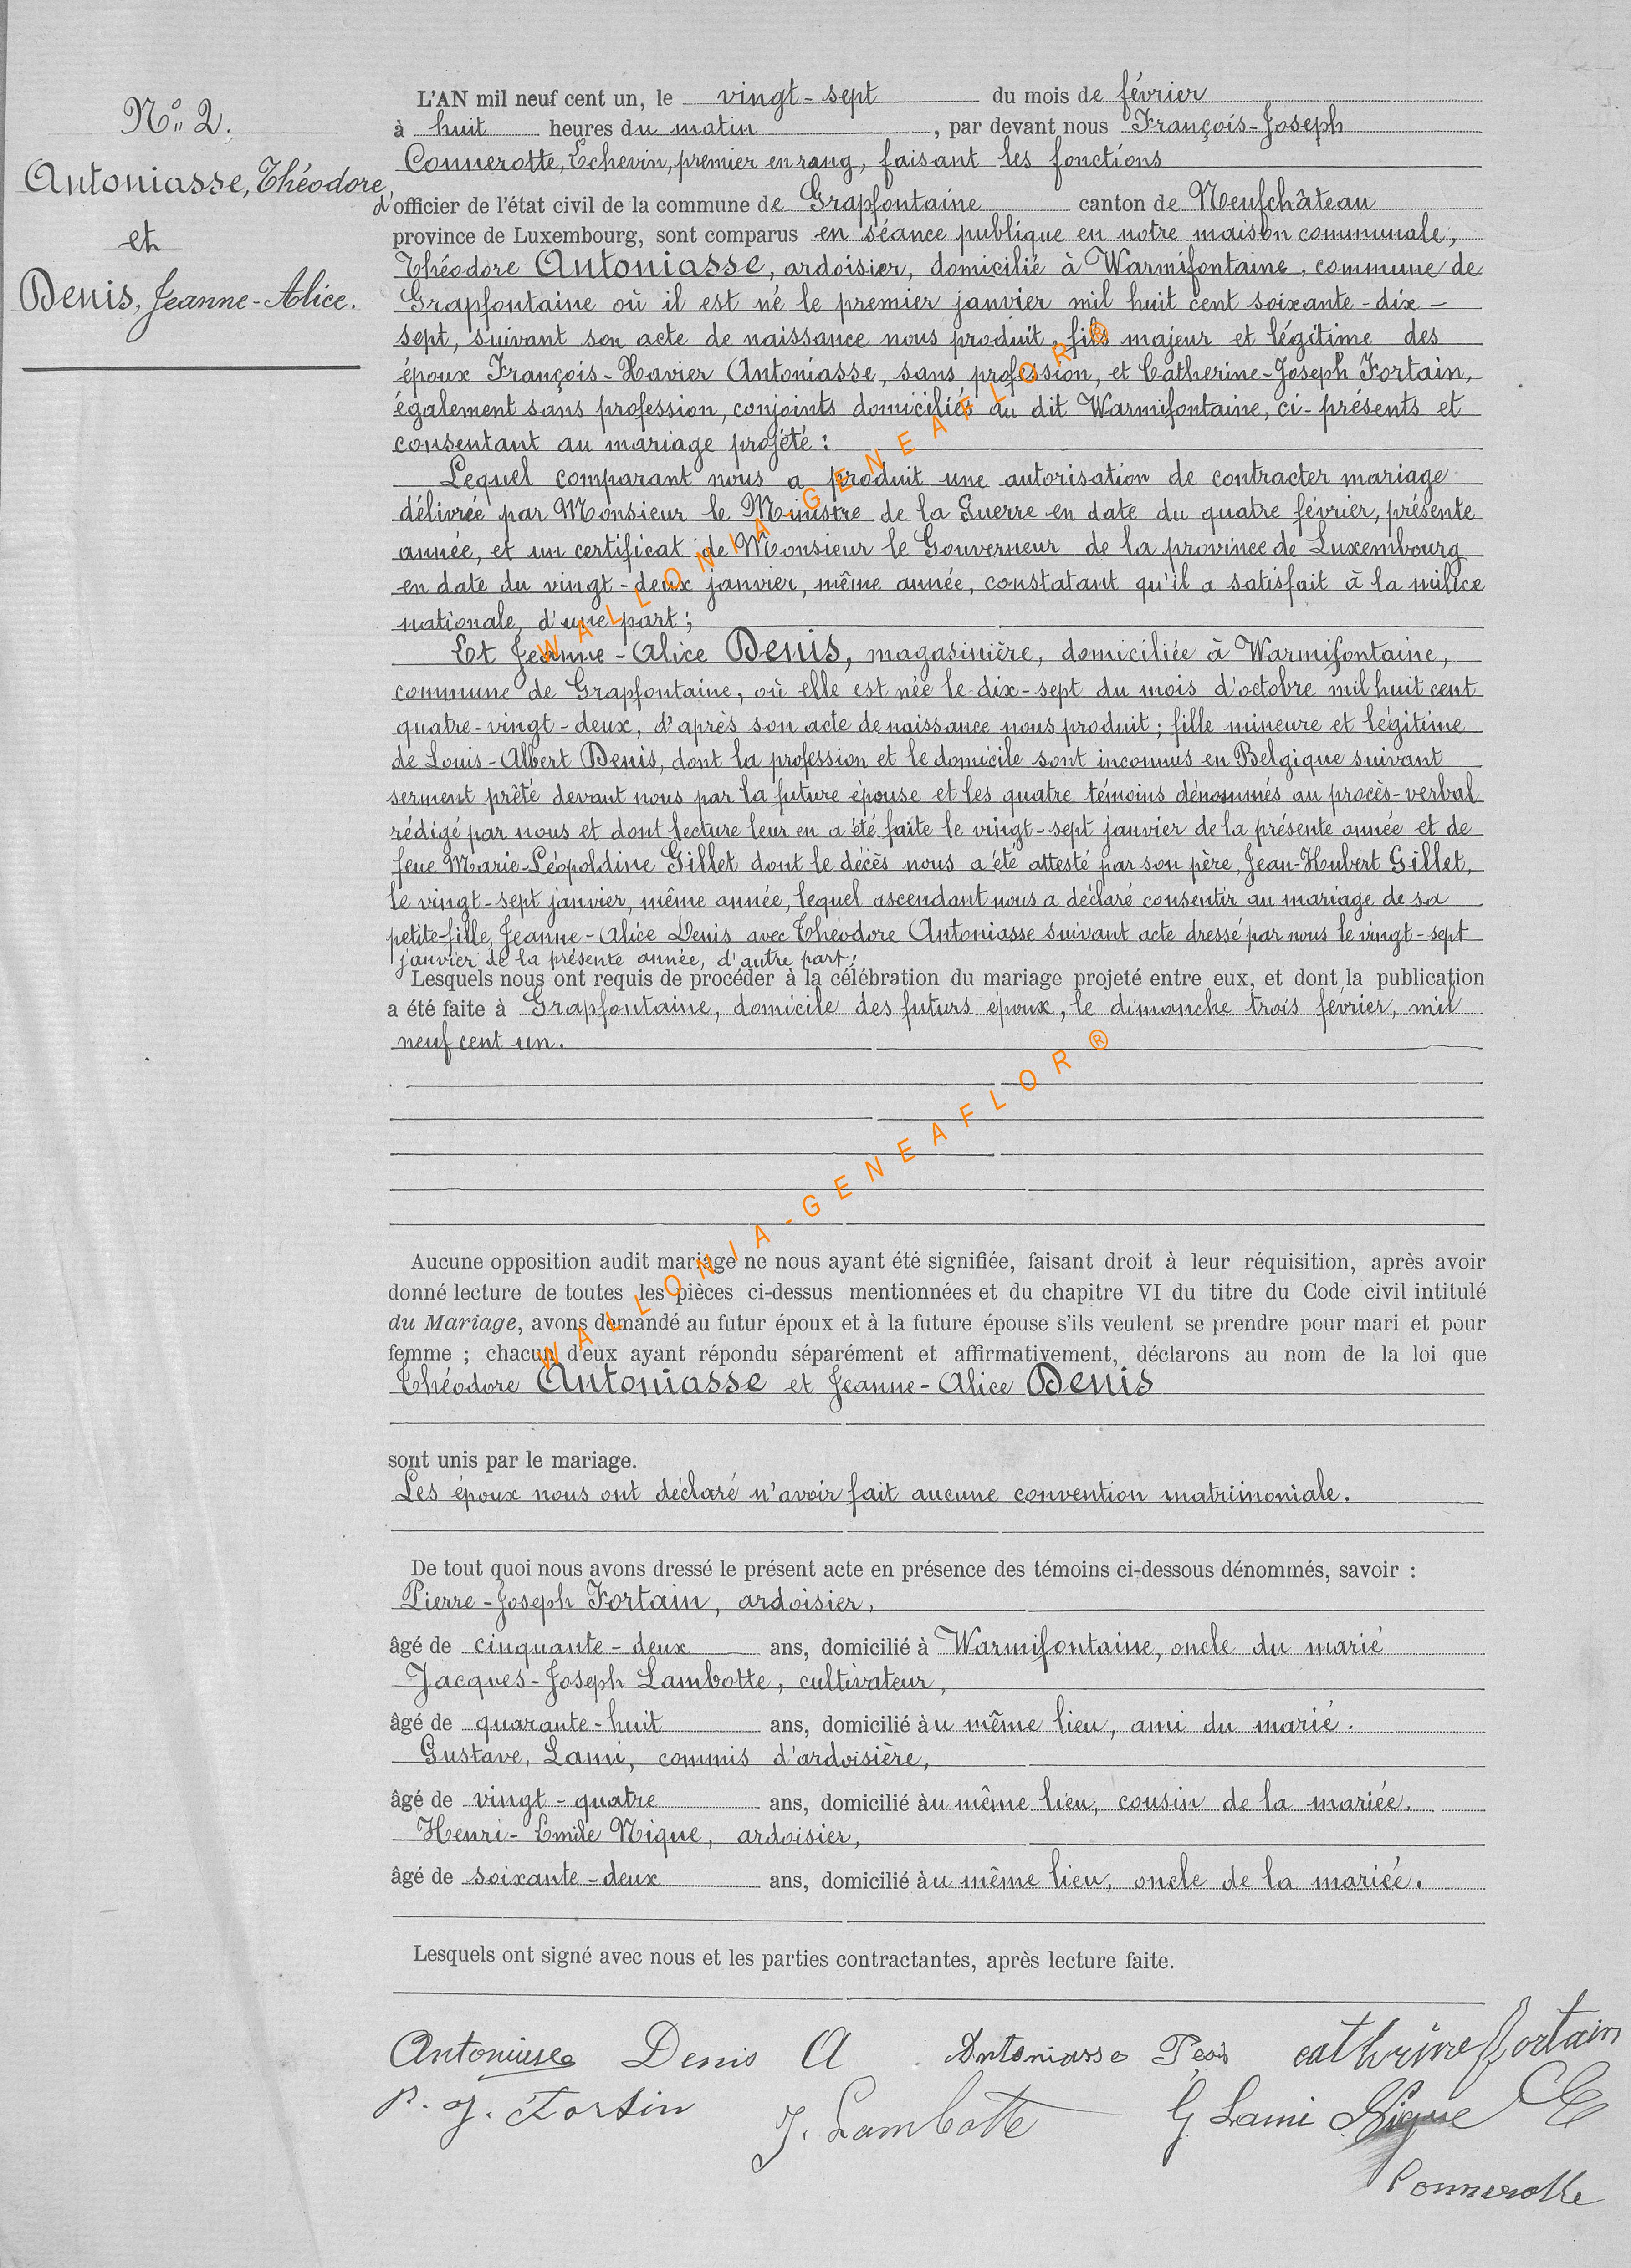 N° 2.
Antoniasse, Théodore,
et
Denis, Jeanne-Alice.
L'AN mil neuf cent un, le vingt-sept du mois de février
à huit heures du matin, par devant nous François-Joseph
Connerotte, Echevin, premier en rang, faisant les fonctions
d'officier de l'état civil de la commune de Grapfontaine canton de Neufchâteau
province de Luxembourg, sont comparus en séance publique en notre maison communale,
Théodore Antoniasse, ardoisier, domicilié à Warmifontaine, commune de
Grapfontaine où il est né le premier janvier mil huit cent soixante-dix-
sept, suivant son acte de naissance nous produit, fils majeur et légitime des
époux François-Xavier Antoniasse, sans profession, et Catherine-Joseph Fortain,
également sans profession, conjoints domiciliés au dit Warmifontaine, ci-présents et
consentant au mariage projeté :
Lequel comparant nous a produit une autorisation de contracter mariage
délivrée par Monsieur le Ministre de la Guerre en date du quatre février, présente
année, et un certificat de Monsieur le Gouverneur de la province de Luxembourg
en date du vingt-deux janvier, même année, constatant qu'il a satisfait à la milice
nationale, d'une part ;
Et Jeanne-Alice Denis, magasinière, domiciliée à Warmifontaine,
commune de Grapfontaine, où elle est née le dix-sept du mois d'octobre mil huit cent
quatre-vingt-deux, d'après son acte de naissance nous produit ; fille mineure et légitime
de Louis-Albert Denis, dont la profession et le domicile sont inconnus en Belgique suivant
serment prêté devant nous par la future épouse et les quatre témoins dénommés au procès-verbal
rédigé par nous et dont lecture leur en a été faite le vingt-sept janvier de la présente année et de
feue Marie-Léopoldine Gillet dont le décès nous a été attesté par son père, Jean-Hubert Gillet,
le vingt-sept janvier, même année, lequel ascendant nous a déclaré consentir au mariage de sa
petite-fille, Jeanne-Alice Denis avec Théodore Antoniasse suivant acte dressé par nous le vingt-sept
janvier de la présente année, d'autre part ;
Lesquels nous ont requis de procéder à la célébration du mariage projeté entre eux, et dont la publication
a été faite à Grapfontaine, domicile des futurs époux, le dimanche trois février, mil
neuf cent un.
Aucune opposition audit mariage ne nous ayant été signifiée, faisant droit à leur réquisition, après avoir
donné lecture de toutes les pièces ci-dessus mentionnées et du chapitre VI du titre du Code civil intitulé
du Mariage, avons demandé au futur époux et à la future épouse s'ils veulent se prendre pour mari et pour
femme ; chacun d'eux ayant répondu séparément et affirmativement, déclarons au nom de la loi que
Théodore Antoniasse et Jeanne-Alice Denis
sont unis par le mariage.
Les époux nous ont déclaré n'avoir fait aucune convention matrimoniale.
De tout quoi nous avons dressé le présent acte en présence des témoins ci-dessous dénommés, savoir :
Pierre-Joseph Fortain, ardoisier,
âgé de cinquante-deux ans, domicilié à Warmifontaine, oncle du marié
Jacques-Joseph Lambotte, cultivateur,
âgé de quarante-huit ans, domicilié au même lieu, ami du marié.
Gustave, Lami, commis d'ardoisière,
âgé de vingt-quatre ans, domicilié au même lieu, cousin de la mariée.
Henri-Emile Nique, ardoisier,
âgé de soixante-deux ans, domicilié au même lieu, oncle de la mariée.
Lesquels ont signé avec nous et les parties contractantes, après lecture faite.
Antoniasse Denis A Antoniasse cathrine fortain
P. J. Fortin J. Lambotte G Lami Nique
Connerotte
WALLONIA-GENEAFLOR®
WALLONIA-GENEAFLOR®